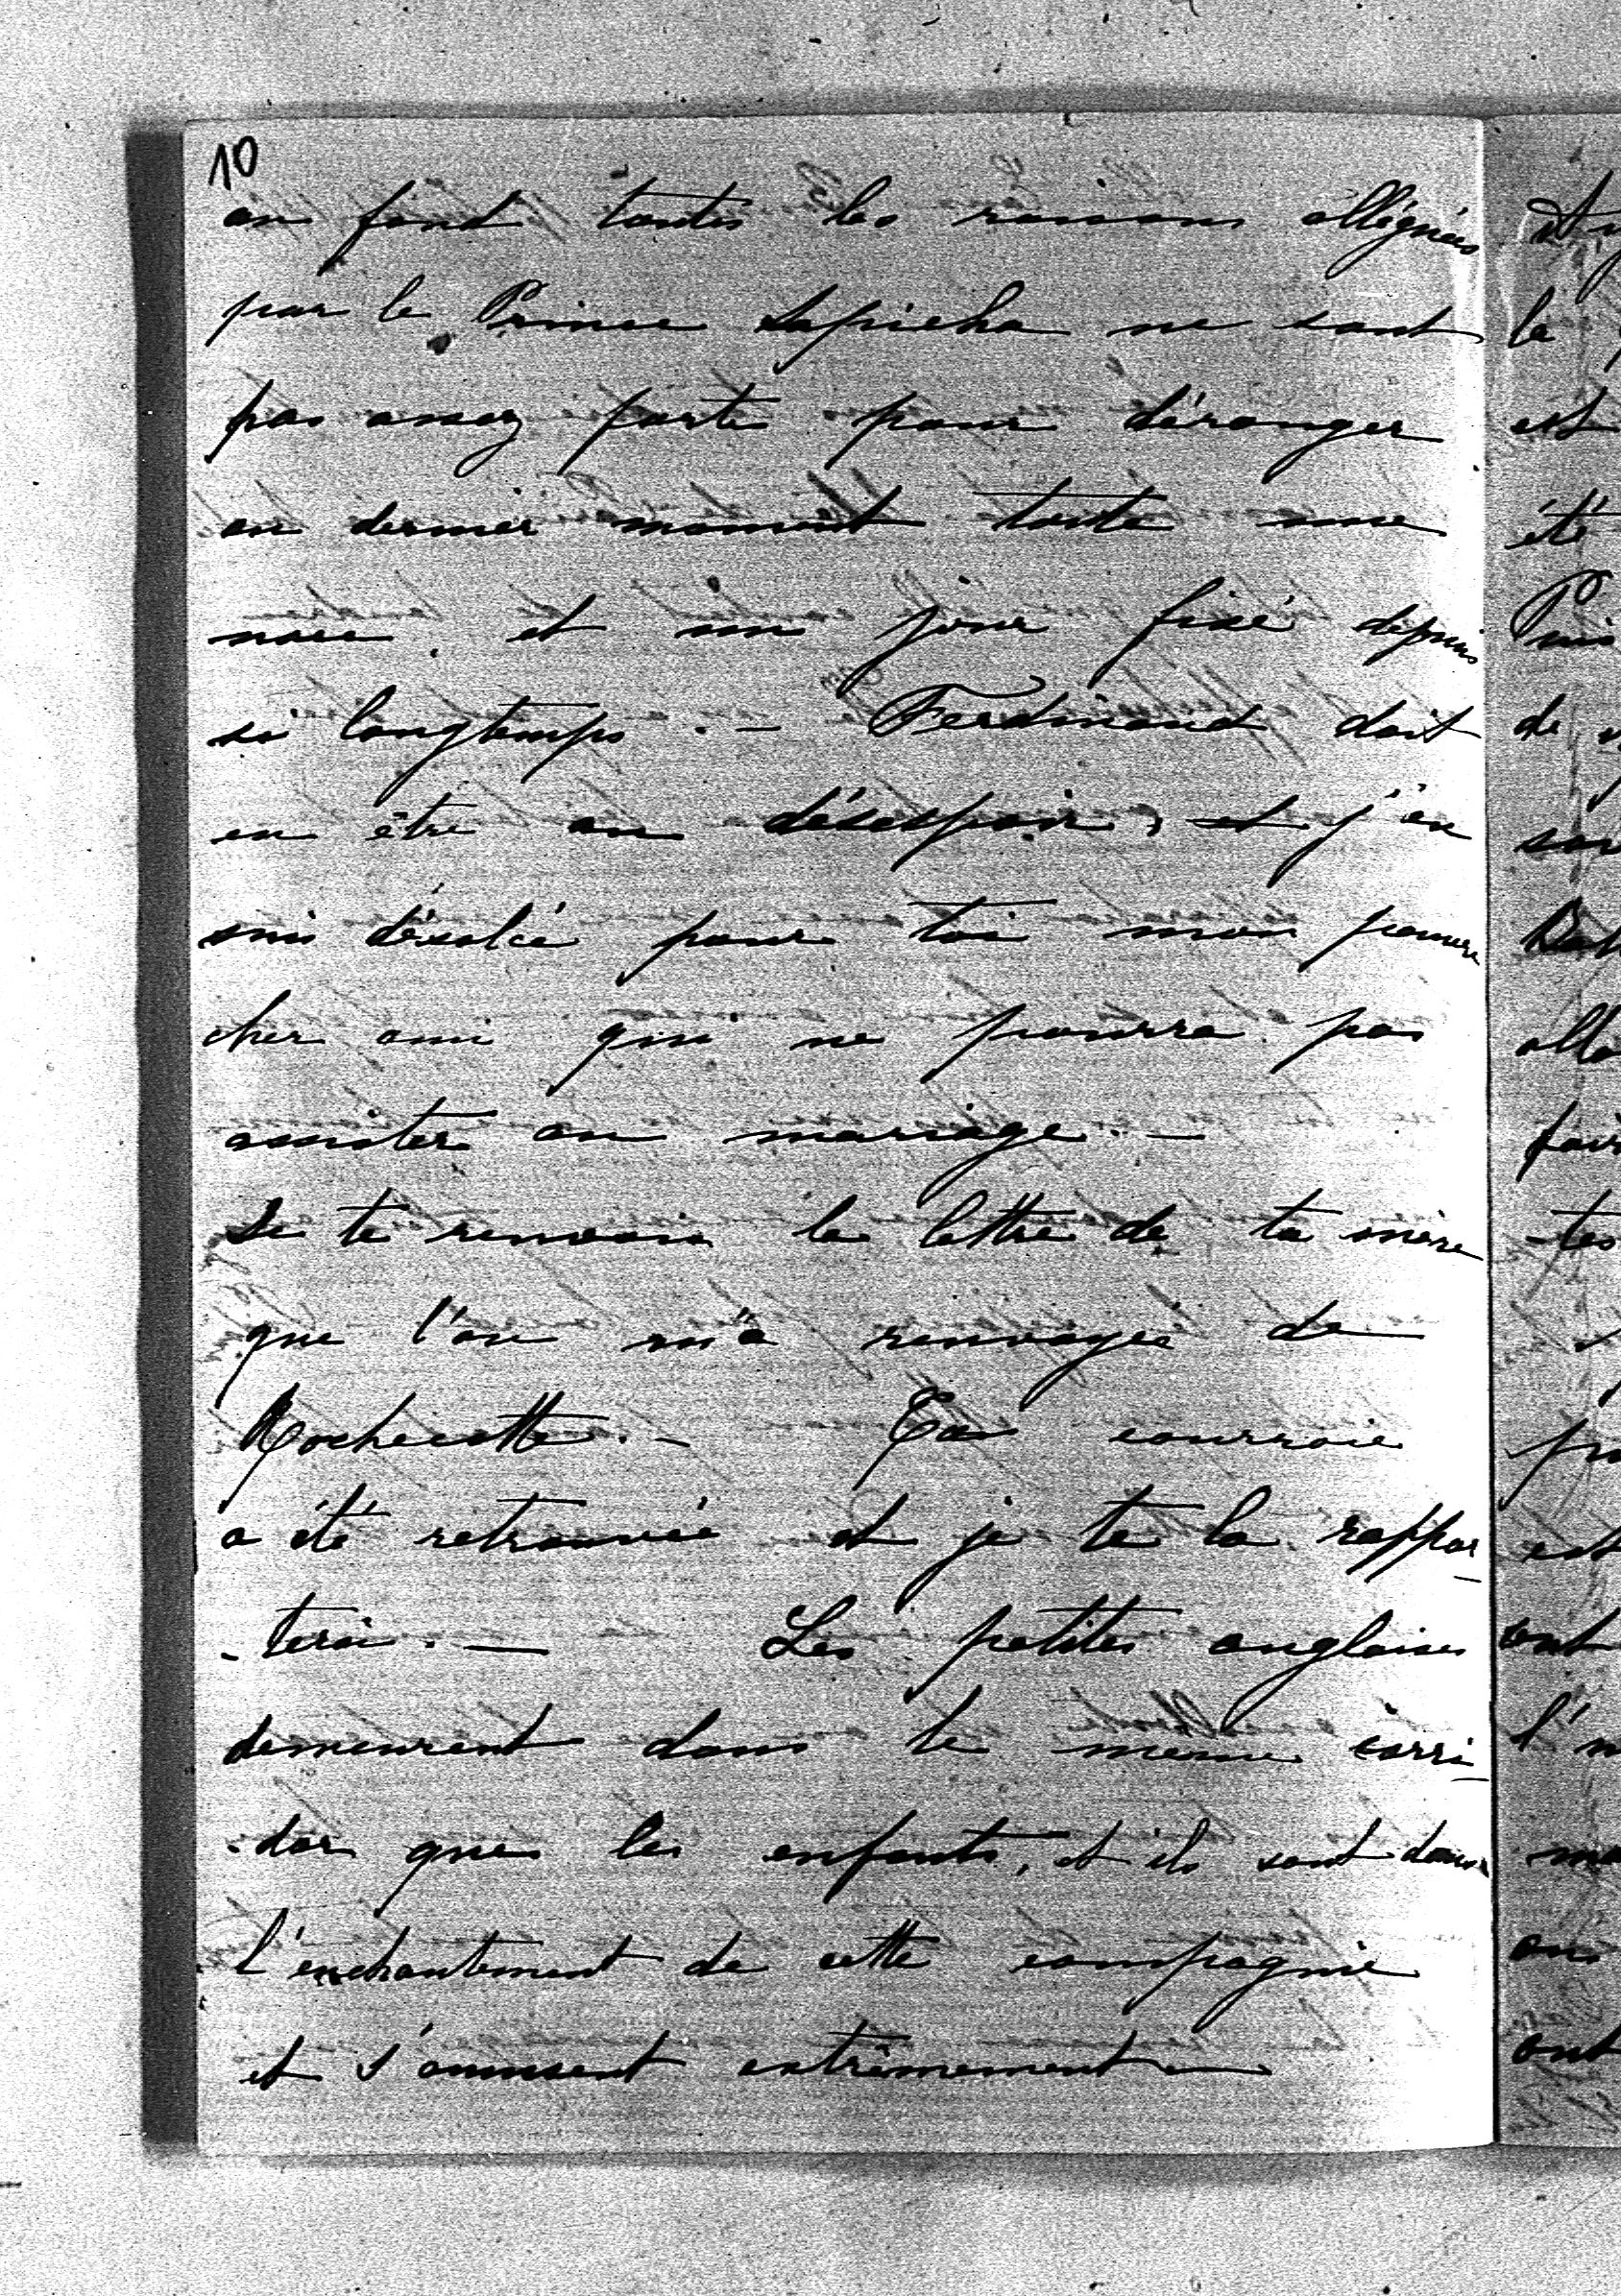 10
au fond toutes les raisons alléguées
par le Prince Sapieha ne sont
pas assez fortes pour déranger
au dernier moment toute une
noce et un jour fixé depuis
si longtemps. — Ferdinand doit
en être au désespoir, et j'en
suis désolée pour toi mon pauvre
cher ami qui ne pourra pas
assister au mariage. —
Je te renvoie la lettre de ta mère
que l'on m'a renvoyée de
Rochecotte. — Ta courroie
a été retrouvée et je te la rappor
-terai. — Les petites anglaises
demeurent dans le même corri
-dor que les enfants, et ils sont dans
l'enchantement de cette compagnie
et s'amusent extrêmement —